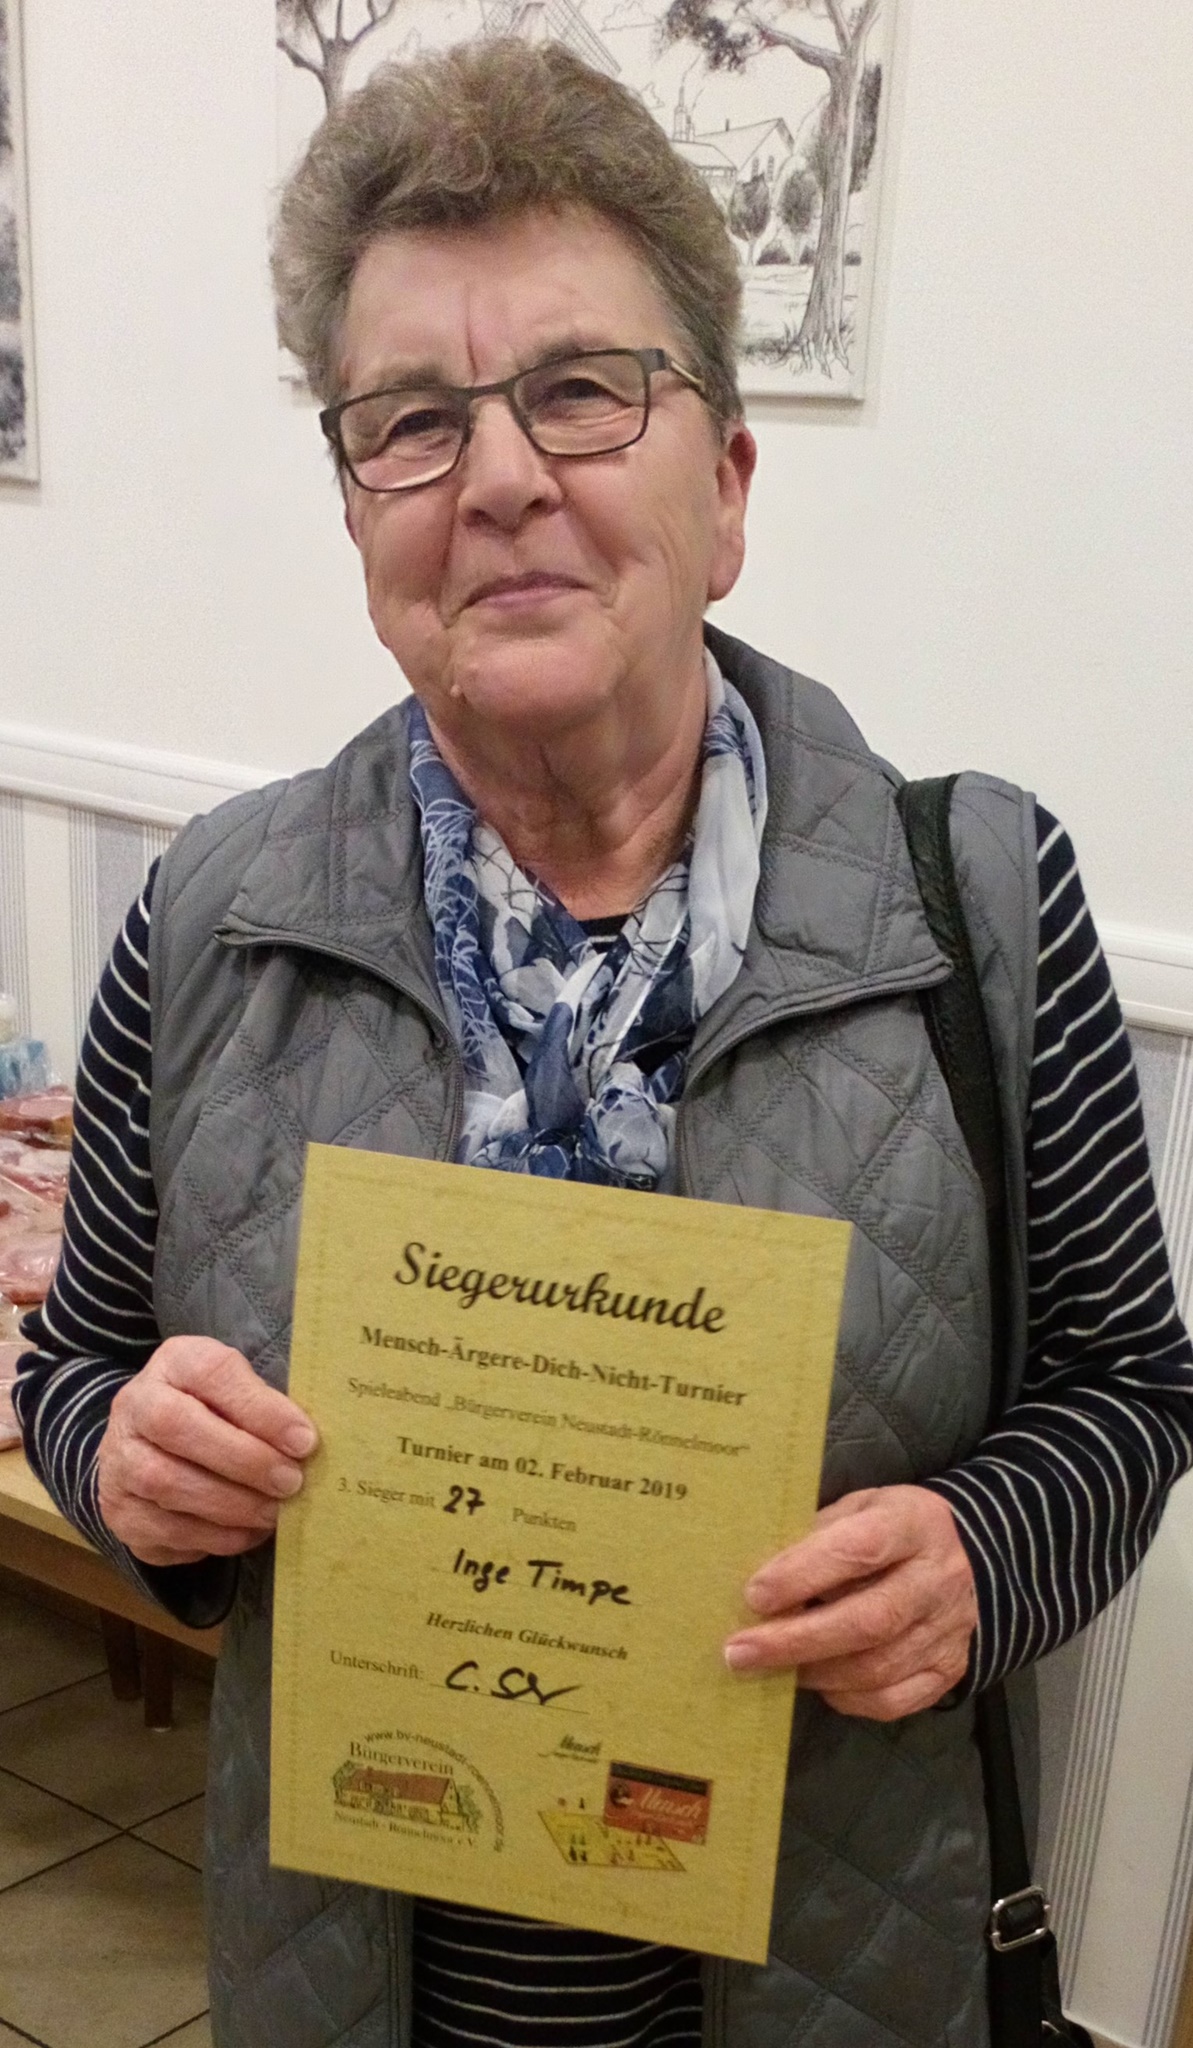 Siegerurkunde
Mensch-Ärgere-Dich-Nicht-Turnier
Spieleabend „Bürgerverein Neustadt-Rönnelmoor“
Turnier am 02. Februar 2019
3. Sieger mit 27 Punkten
Inge Timpe
Herzlichen Glückwunsch
Unterschrift:
Bürgerverein
Mensch
Mensch